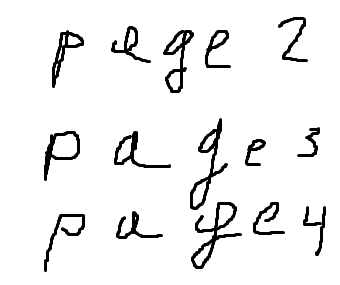 page 2
page 3
page 4